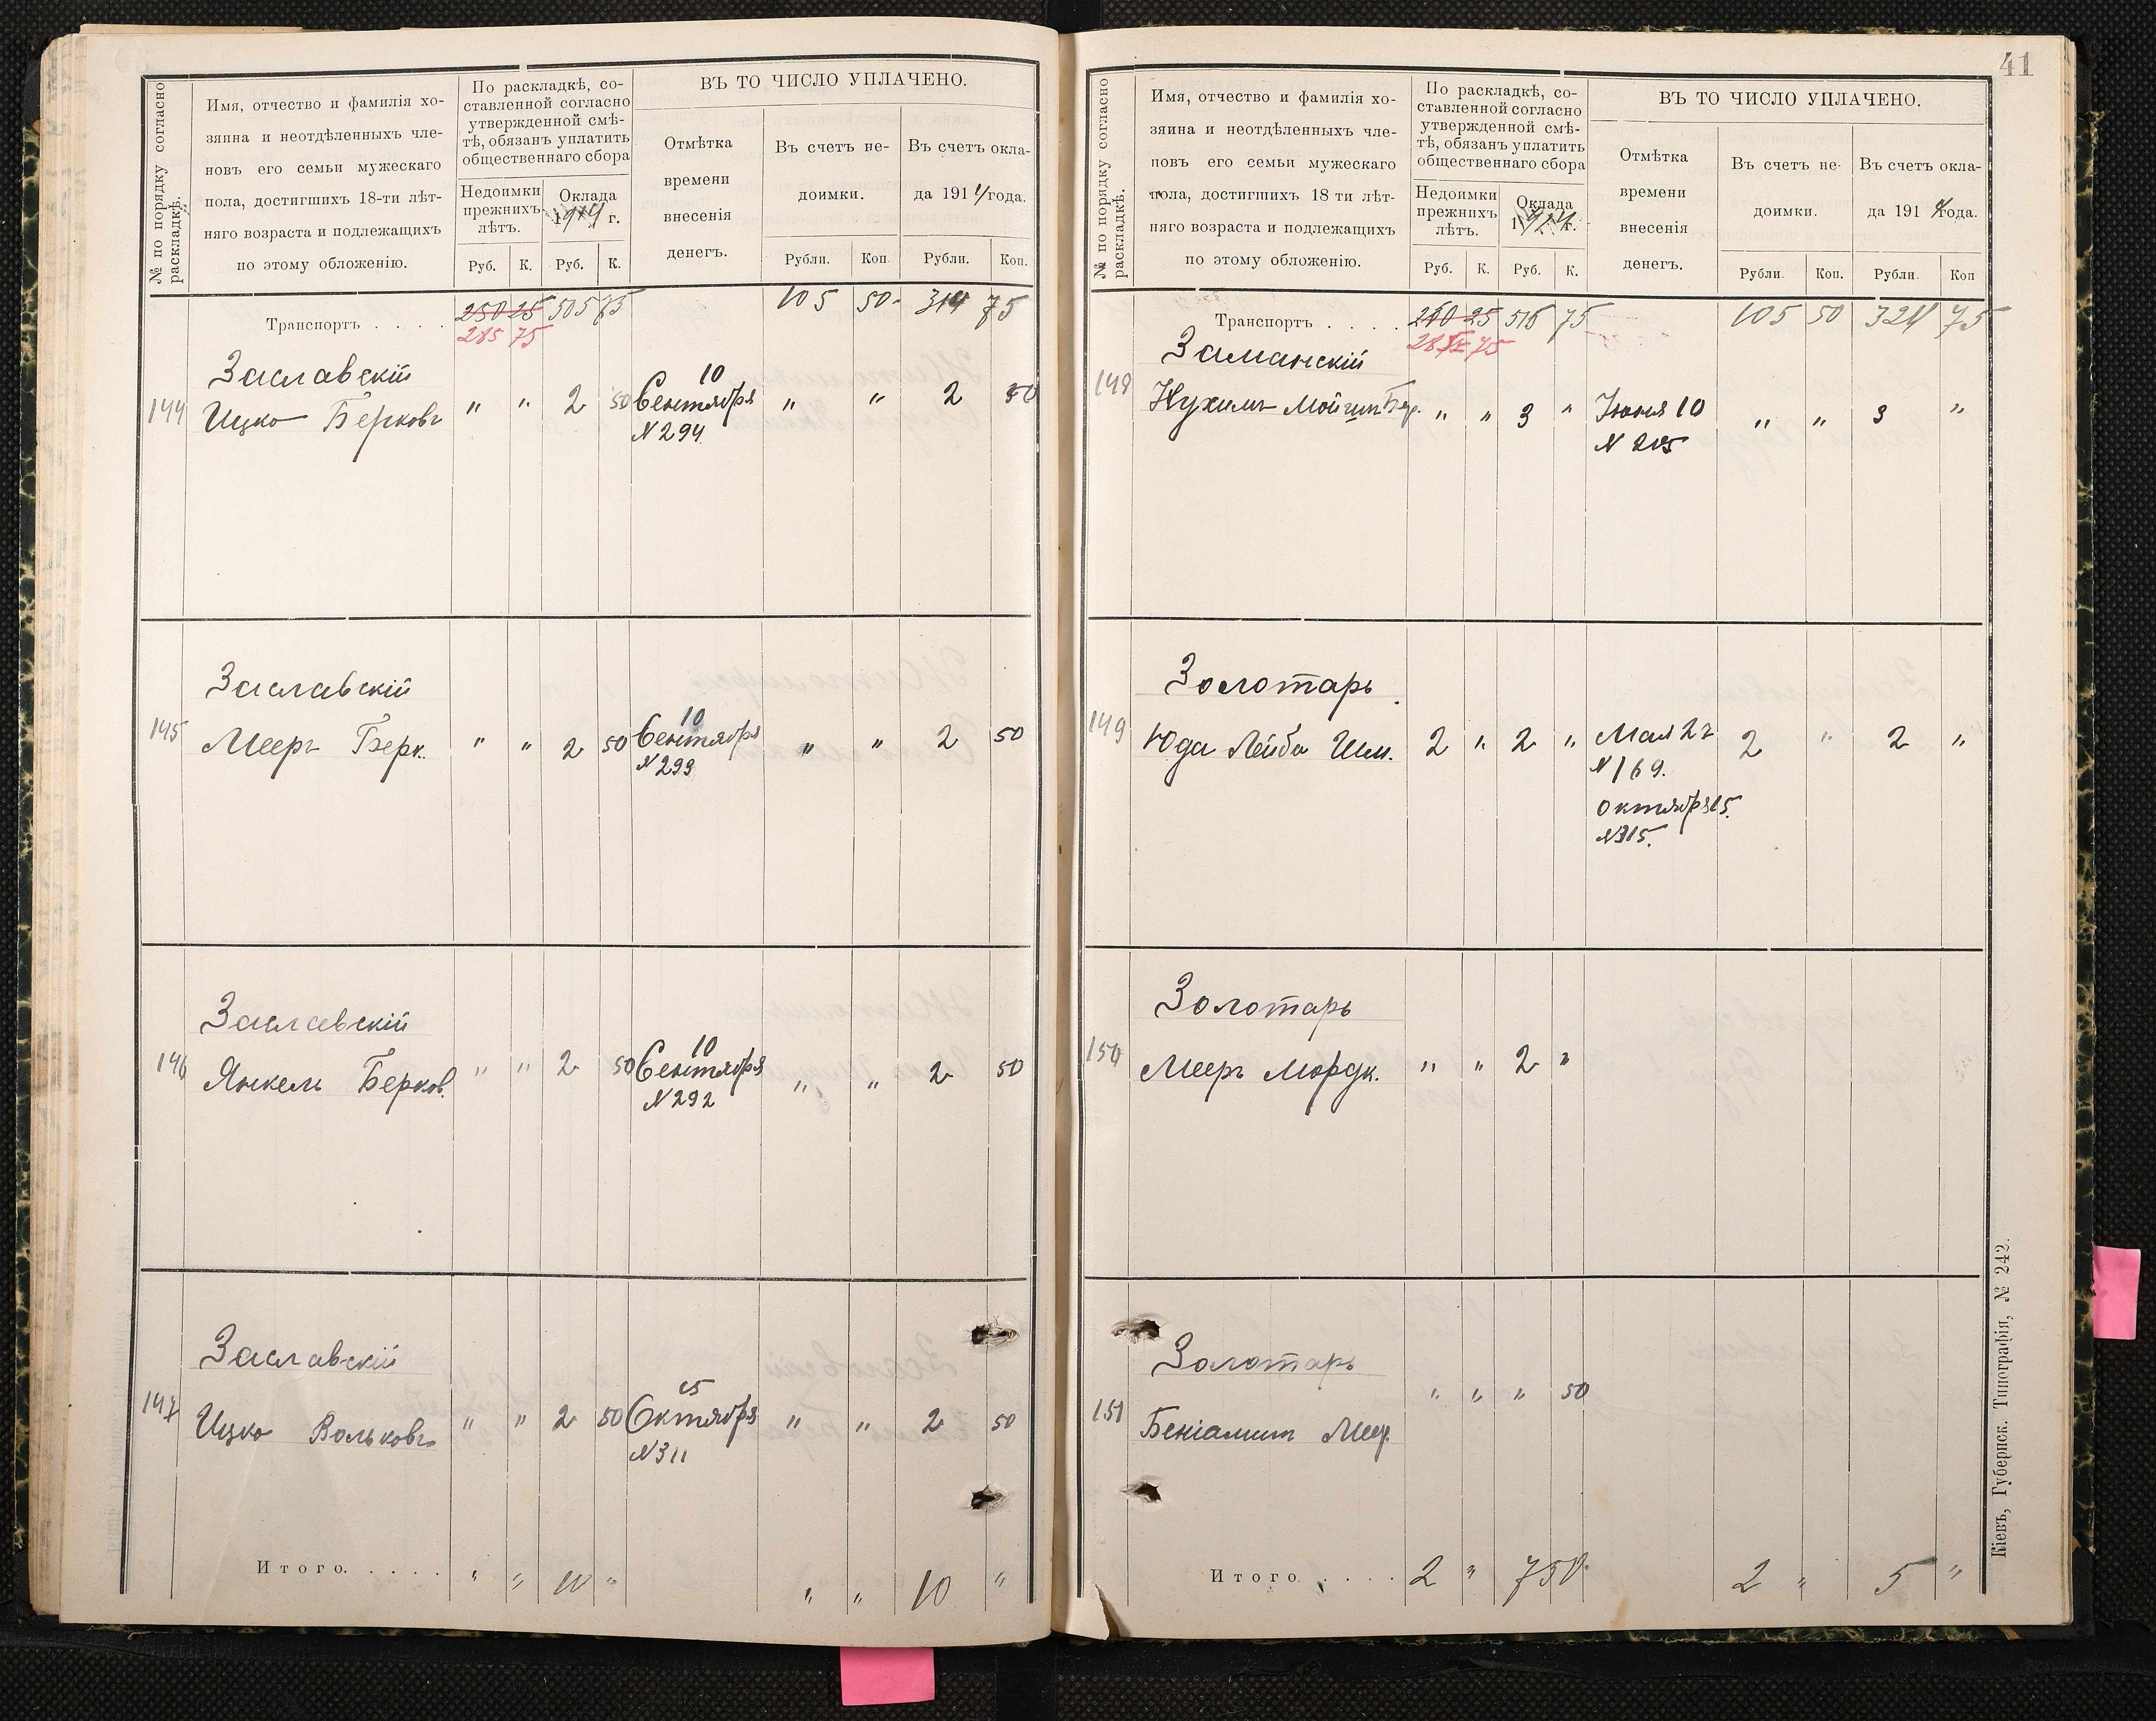 № по порядку согласно
раскладкѣ.
Имя, отчество и фамилія хо-
зяина и неотдѣленныхъ чле-
новъ его семьи мужескаго
пола, достигшихъ 18-ти лѣт-
няго возраста и подлежащихъ
по этому обложенію.
По раскладкѣ, со-
ставленной согласно
утвержденной смѣ-
тѣ, обязанъ уплатить
общественнаго сбора
Недоимки
прежнихъ
лѣтъ.
Оклада
1914 г.
Руб. К. Руб. К.
ВЪ ТО ЧИСЛО УПЛАЧЕНО.
Отмѣтка
времени
внесенія
денегъ.
Въ счетъ не-
доимки.
Въ счетъ окла-
да 1914 года.
Рубли. Коп. Рубли. Коп.
Транспортъ . . . . 250 25 505 75 105 50 314 75
285 75
Заславскій
144 Ицко Берковъ " " 2 50 10 Сентября " " 2 50
N 294
Заславскій
145 Мееръ Берк. " " 2 50 10 Сентября " " 2 50
N 293
Заславскій
146 Янкель Берков. " " 2 50 10 Сентября " " 2 50
N 292
Заславскій
147 Ицко Вольковъ " " 2 50 15 Октября " " 2 50
N 311
Итого. . . . . " " 10 " " " 10 "
41
№ по порядку согласно
раскладкѣ.
Имя, отчество и фамилія хо-
зяина и неотдѣленныхъ чле-
новъ его семьи мужескаго
пола, достигшихъ 18 ти лѣт-
няго возраста и подлежащихъ
по этому обложенію.
По раскладкѣ, со-
ставленной согласно
утвержденной смѣ-
тѣ, обязанъ уплатить
общественнаго сбора
Недоимки
прежнихъ
лѣтъ.
Оклада
1914 г.
Руб. К. Руб. К.
ВЪ ТО ЧИСЛО УПЛАЧЕНО.
Отмѣтка
времени
внесенія
денегъ.
Въ счетъ не-
доимки.
Въ счетъ окла-
да 1914 года.
Рубли. Коп. Рубли. Коп
Транспортъ . . . . 25 515 75 105 50 324 75
75
Заманскій
148 Нухимъ " " 3 " Іюня 10 " " 3 "
Золотарь
149 Юда Лейба Шм. 2 " 2 " Мая 2 " 2 "
N 169.
Октября 15.
N 315.
Золотарь
150 Мееръ Мордк. " " 2 "
Золотарь
151 Беніаминъ Меер. " " " 50
Итого . . . . 2 " 7 50 2 " 5 "
Кіевъ, Губернск. Типографія, № 242.